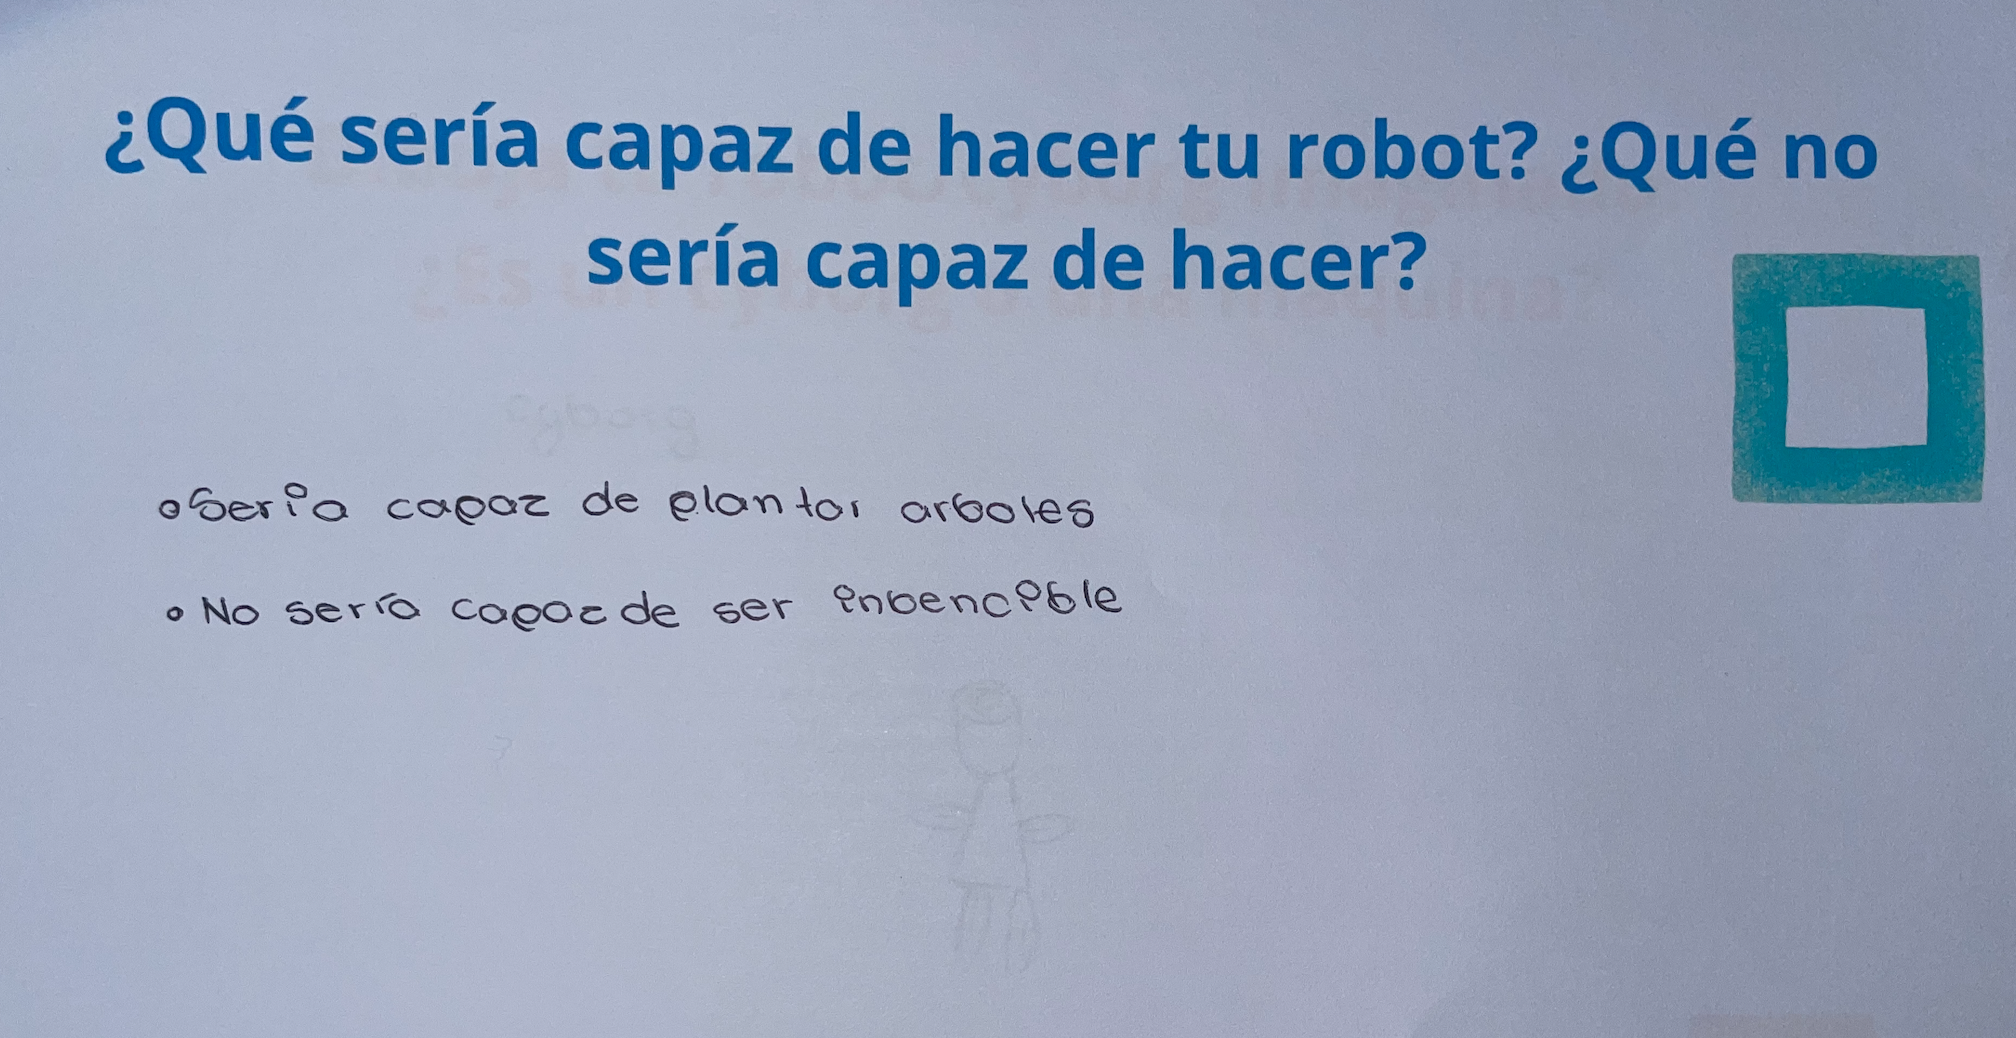 ¿Qué sería capaz de hacer tu robot? ¿Qué no
sería capaz de hacer?
cyborg
Seria capaz de plantar arboles
No sería capaz de ser inbencible